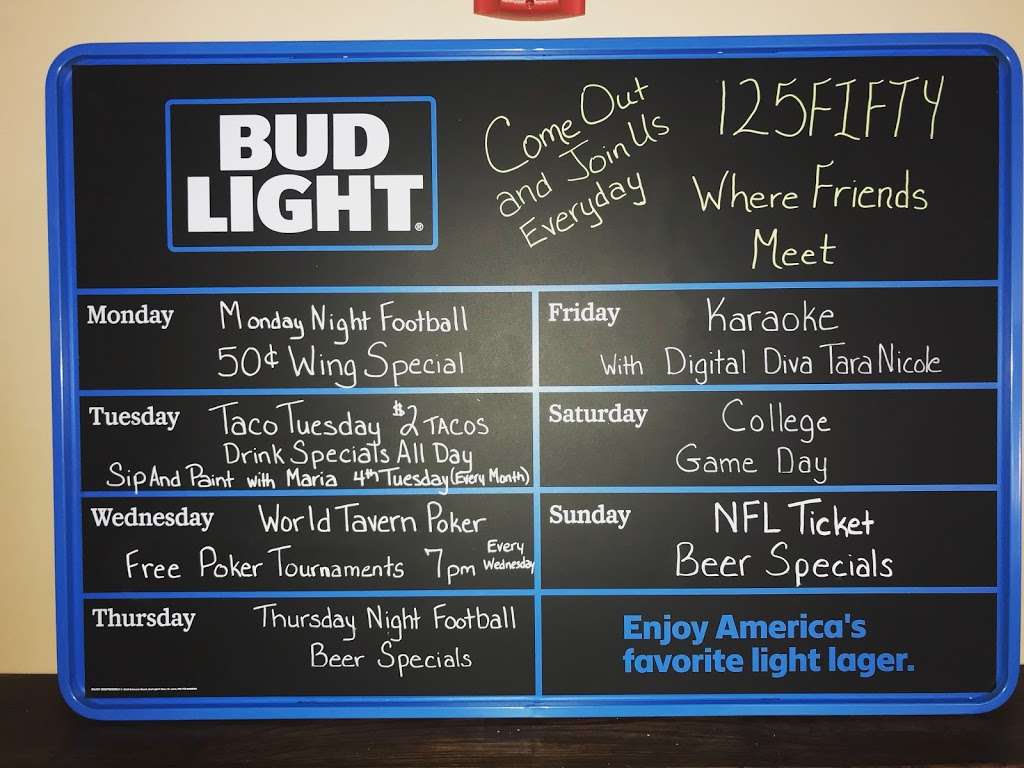 BUD
LIGHT®
Come Out
and Join Us
Everyday
125FIFTY
Where Friends
Meet
Monday
Monday Night Football
50¢ Wing Special
Tuesday
Taco Tuesday $2 TACOS
Drink Specials All Day
Sip And Paint with Maria 4th Tuesday (Every Month)
Wednesday
World Tavern Poker
Free Poker Tournaments 7pm Every Wednesday
Thursday
Thursday Night Football
Beer Specials
Friday
Karaoke
With Digital Diva Tara Nicole
Saturday
College
Game Day
Sunday
NFL Ticket
Beer Specials
Enjoy America's
favorite light lager.